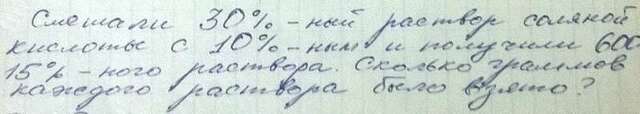 Смешали 30%-ный раствор соляной
кислоты с 10%-ным и получили 600
15%-ного раствора. Сколько граммов
каждого раствора было взято?